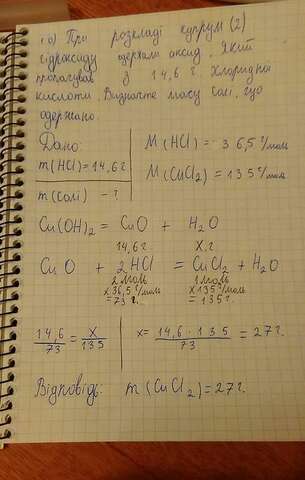 1. а) При розкладі купрум (2)
гідроксиду одержали оксид. Який
прореагував з 14,6 г. Хлоридної
кислоти. Визначте масу солі, що
одержано.
Дано:
m(HCl)=14,6г.
m(солі) - ?
M(HCl)= 36,5 г/моль
M(CuCl₂)=135 г/моль
Cu(OH)₂ = CuO + H₂O
14,6г. X.г
CuO + 2HCl = CuCl₂ + H₂O
2моль 1моль
x36,5г/моль x135г/моль
=73г. =135г.
14,6/73 = X/135
x= 14,6·135/73 = 27г.
Відповідь: m(CuCl₂)=27г.